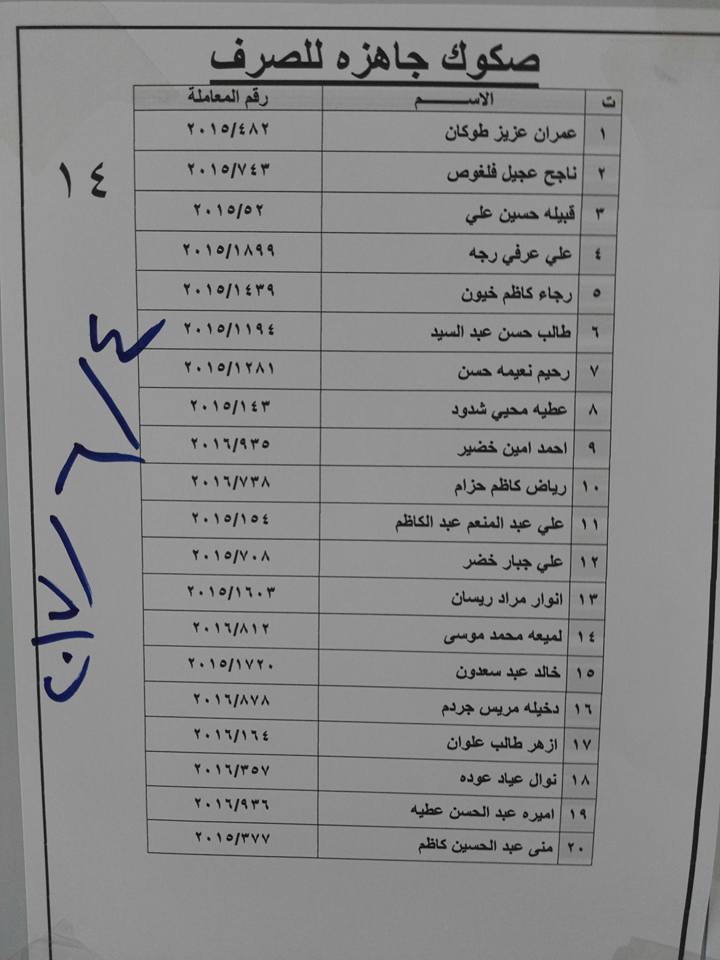 صكوك جاهزه للصرف
ت الاســـــم رقم المعاملة
١ عمران عزيز طوكان ٢٠١٥/٤٨٢
٢ ناجح عجيل فلغوص ٢٠١٥/٧٤٣
٣ قبيله حسين علي ٢٠١٥/٥٢
٤ علي عرفي رجه ٢٠١٥/١٨٩٩
٥ رجاء كاظم خيون ٢٠١٥/١٤٣٩
٦ طالب حسن عبد السيد ٢٠١٥/١١٩٤
٧ رحيم نعيمه حسن ٢٠١٥/١٢٨١
٨ عطيه محيي شدود ٢٠١٥/١٤٣
٩ احمد امين خضير ٢٠١٦/٩٣٥
١٠ رياض كاظم حزام ٢٠١٦/٧٣٨
١١ علي عبد المنعم عبد الكاظم ٢٠١٥/١٥٤
١٢ علي جبار خضر ٢٠١٥/٧٠٨
١٣ انوار مراد ريسان ٢٠١٥/١٦٠٣
١٤ لميعه محمد موسى ٢٠١٦/٨١٢
١٥ خالد عبد سعدون ٢٠١٥/١٧٢٠
١٦ دخيله مريس جردم ٢٠١٦/٨٧٨
١٧ ازهر طالب علوان ٢٠١٦/١٦٤
١٨ نوال عياد عوده ٢٠١٦/٣٥٧
١٩ اميره عبد الحسن عطيه ٢٠١٦/٩٣٦
٢٠ منى عبد الحسين كاظم ٢٠١٥/٣٧٧
١٤
٤/٦/٠١٧